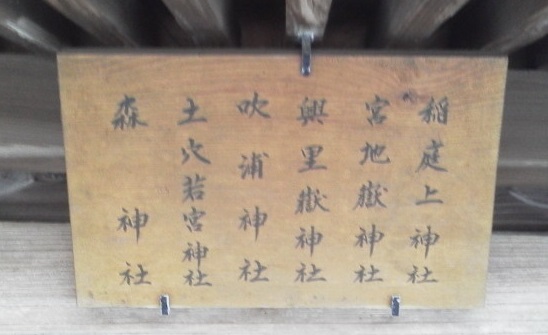 稲庭上神社
宮地嶽神社
興里嶽神社
吹浦神社
土穴若宮神社
森神社